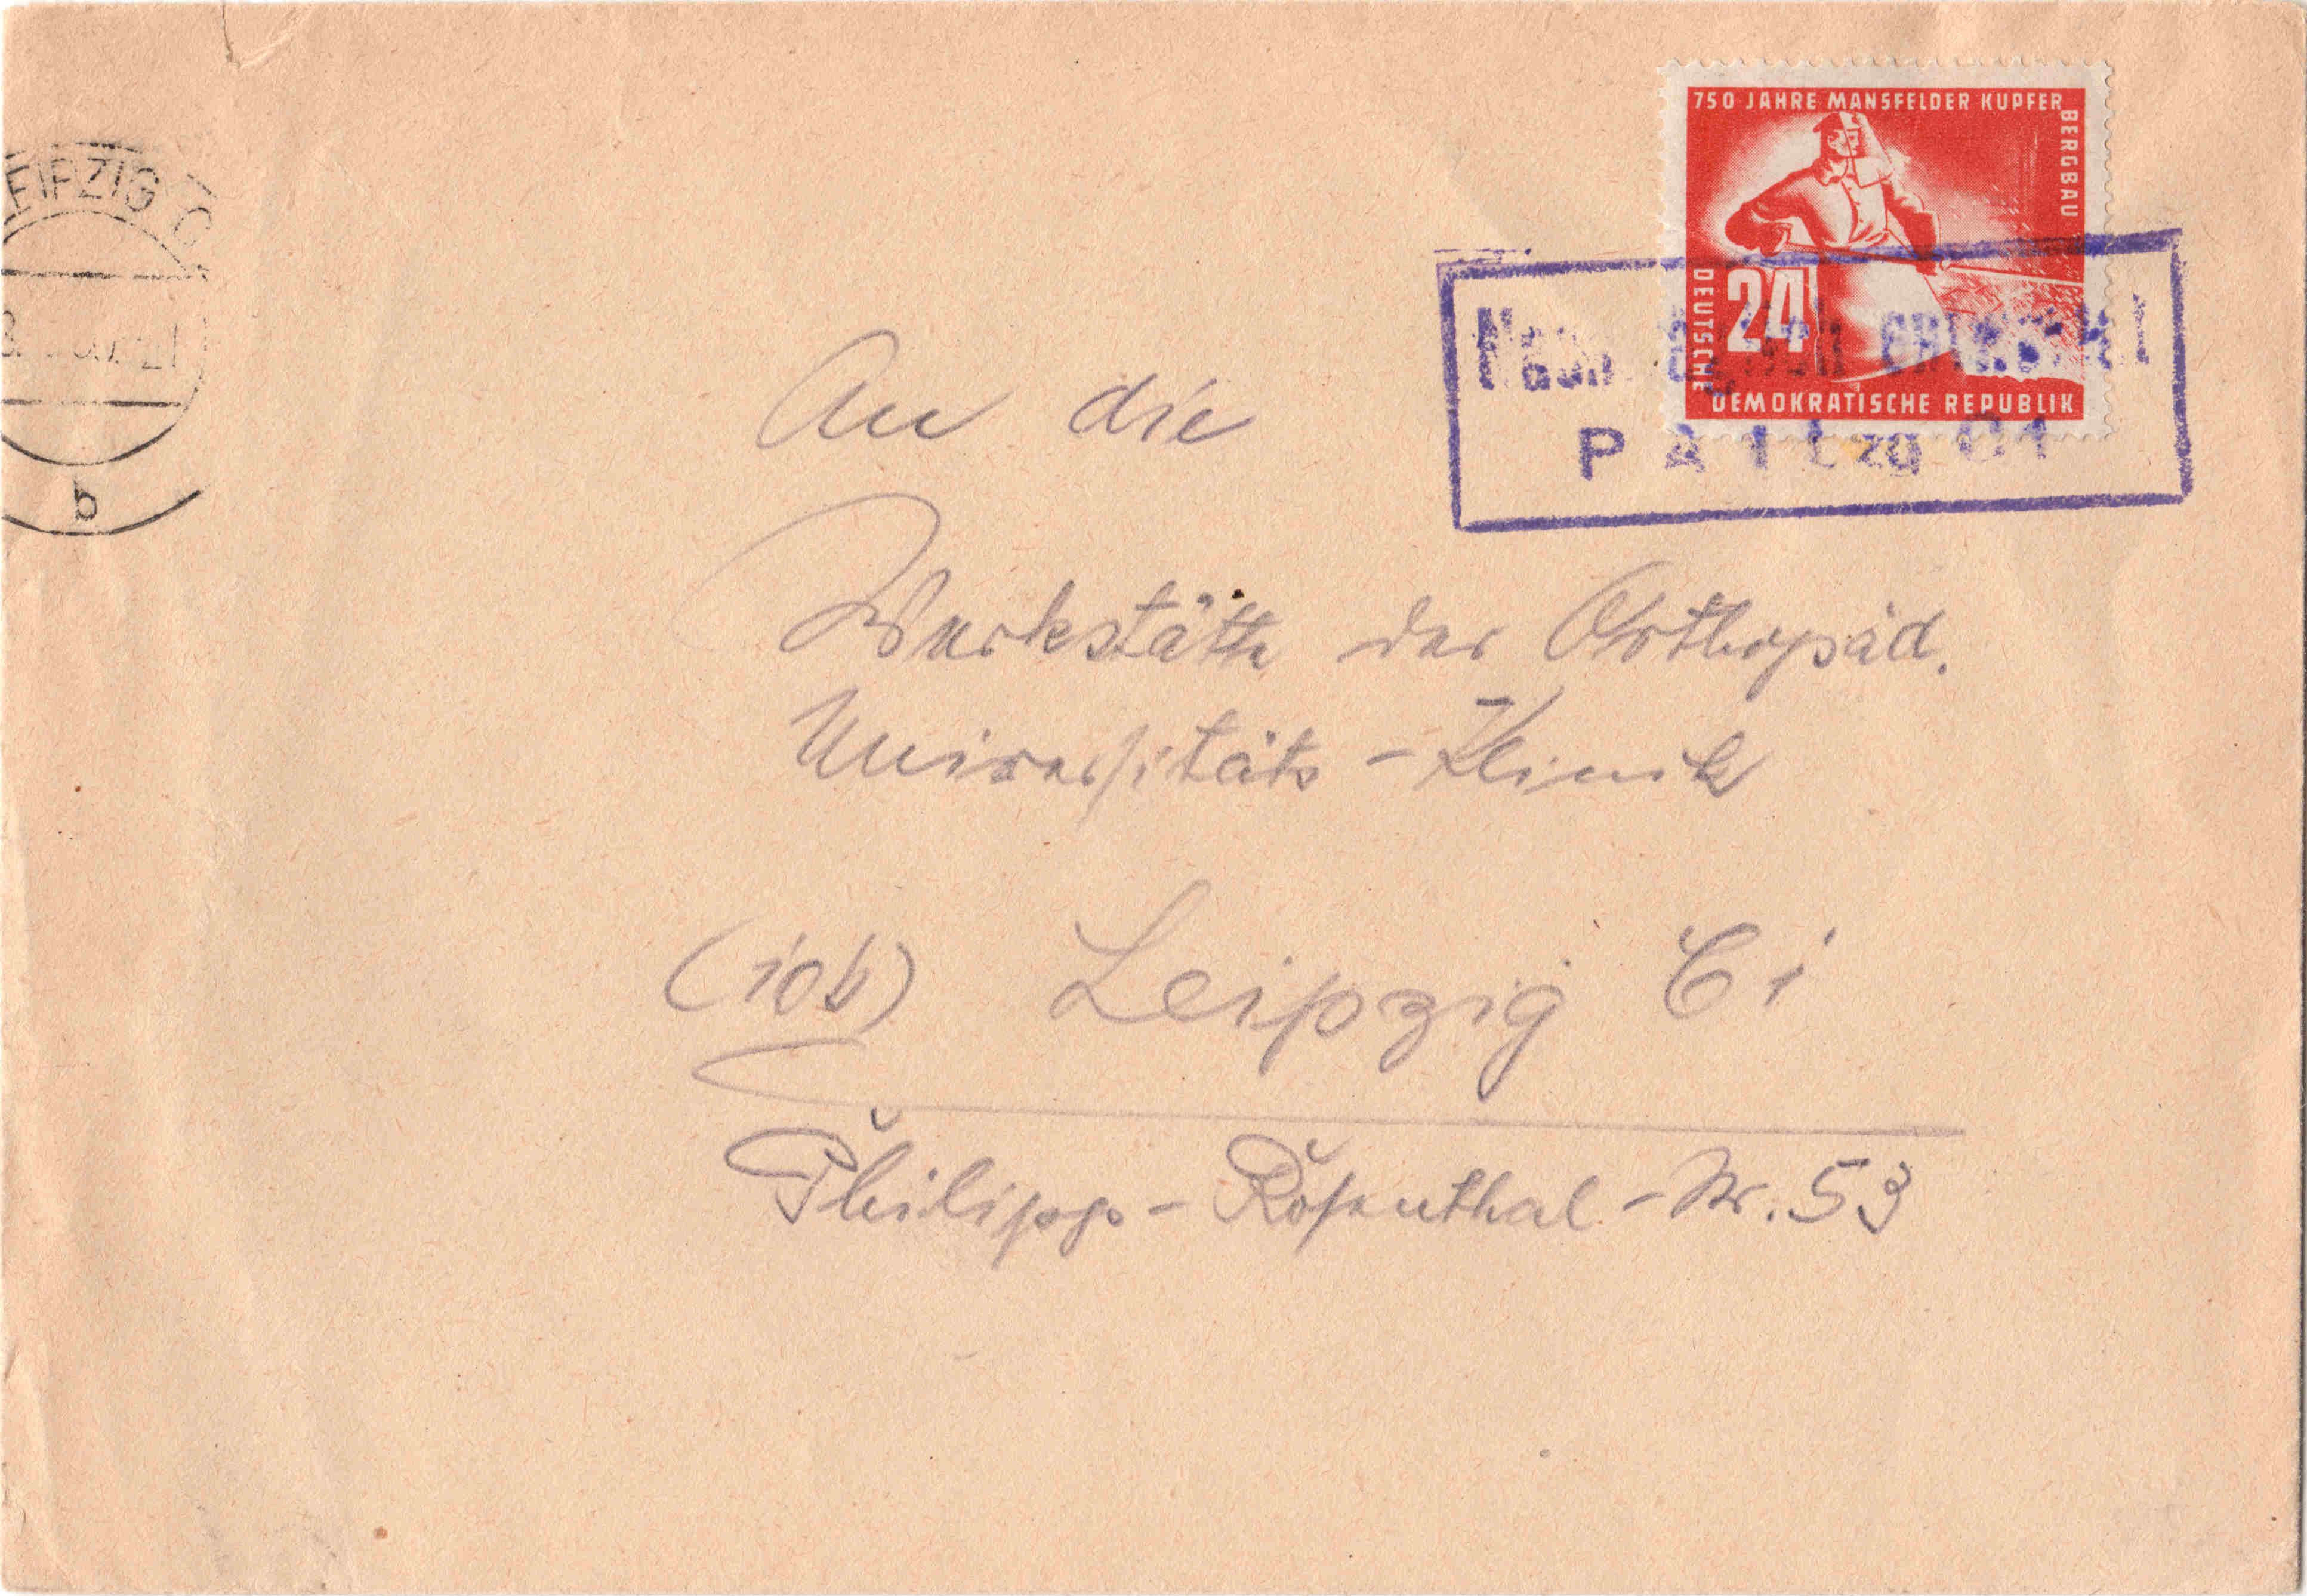 750 JAHRE MANSFELDER KUPFER
BERGBAU
DEUTSCHE
24
DEMOKRATISCHE REPUBLIK
EIPZIG C
b
An die
Werkstätte der Orthopäd.
Universitäts - Klinik
(10b) Leipzig C1
Philipp - Rosenthal - Nr. 53